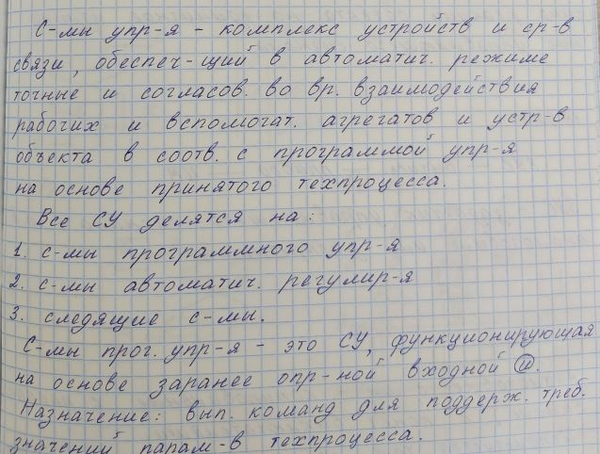 С-мы упр-я - комплекс устройств и ср-в
связи, обеспеч-щий в автоматич. режиме
точные и согласов. во вр. взаимодействия
рабочих и вспомогат. агрегатов и устр-в
объекта в соотв. с программой упр-я
на основе принятого техпроцесса.
Все СУ делятся на:
1. с-мы программного упр-я
2. с-мы автоматич. регулир-я
3. следящие с-мы.
С-мы прог. упр-я - это СУ, функционирующая
на основе заранее опр-ной входной И.
Назначение: вып. команд для поддерж. треб.
значений парам-в техпроцесса.